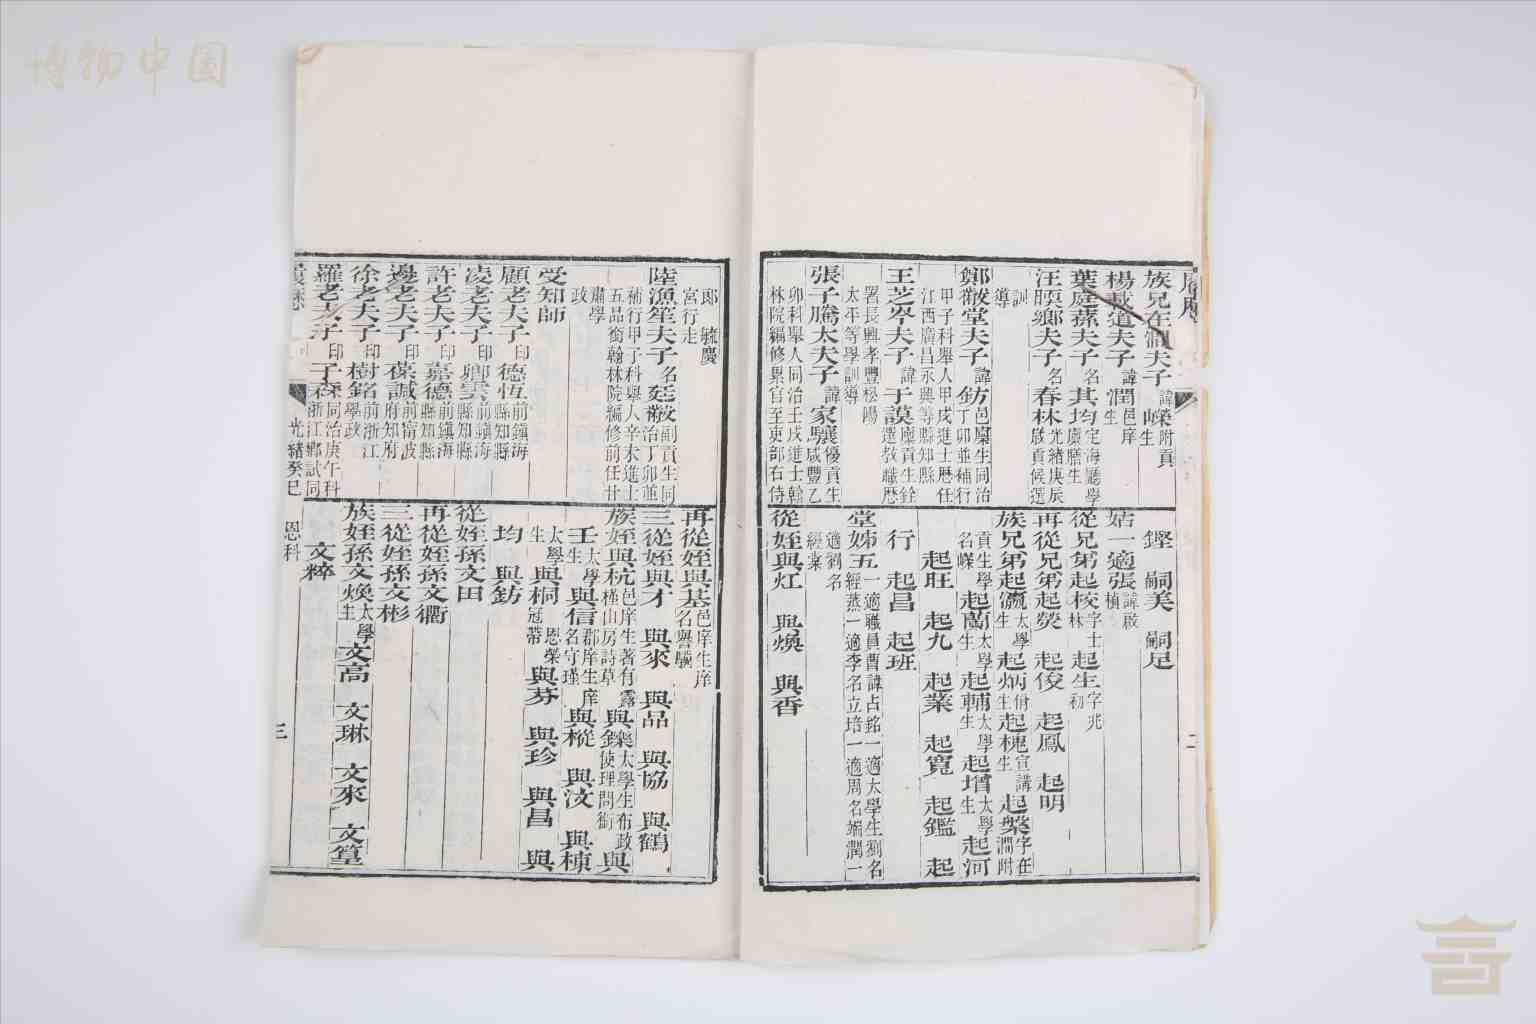 博物中国
族兄在澗夫子諱榮嶸附貢生
楊載道夫子諱潤邑庠生
葉庭蓀夫子名其均定海廳學廩膳生
汪腴鄉夫子名春林光緒庚辰歲貢候選
訓導
鄭敬堂夫子諱鈁邑廩生同治丁卯並補行
甲子科舉人甲戌進士歷任江西廣昌永興等縣知縣
王芝岑夫子諱于謨廩貢生銓選教職歷
署長興孝豐松陽太平等學訓導
張子騰太夫子諱家驤優貢生咸豐乙
卯科舉人同治壬戌進士翰林院編修累官至吏部右侍
鏗 嗣美 嗣足
姑一適張諱啟楨
從兄弟起校字士林起生字兆初
再從兄弟起熒 起俊 起鳳 起明
族兄弟起瀛太學生起炳佾生起槐宣講生起槃字在澗附
貢生學名嶸起蘭太學生起輔太學生起增太學生起河
起旺 起九 起業 起寬 起鑑 起
行 起昌 起班
堂姊五一適職員曹諱占銘一適太學生劉名
經蒸一適李名立培一適周名端潤一
適劉名經棠
從姪與灴 與煥 與香
二
郎 毓慶
宮行走
陸漁笙夫子名廷黻副貢生同治丁卯並
補行甲子科舉人辛未進士五品銜翰林院編修前任甘
肅學政
受知師
顧老夫子印德恆前鎮海縣知縣
凌老夫子印鄉雲前鎮海縣知縣
許老夫子印嘉德前鎮海縣知縣
邊老夫子印葆諴前甯波府知府
徐老夫子印樹銘前浙江學政
羅老夫子印子森同治庚午科浙江鄉試同
再從姪與基邑庠生庠名譽驥
三從姪與才 與來 與品 與協 與鶴
族姪與杭邑庠生著有露槿山房詩草與樂太學生與錢布政使理問銜與
壬太學生與信郡庠生庠名守瑾與樅 與汶 與楨
太學生與桐恩榮冠帶與芬 與珍 與昌 與
均 與鈁
從姪孫文田
再從姪孫文衢
三從姪孫文彬
族姪孫文煥太學生文高 文琳 文來 文篁
文粹
光緒癸巳 恩科
三